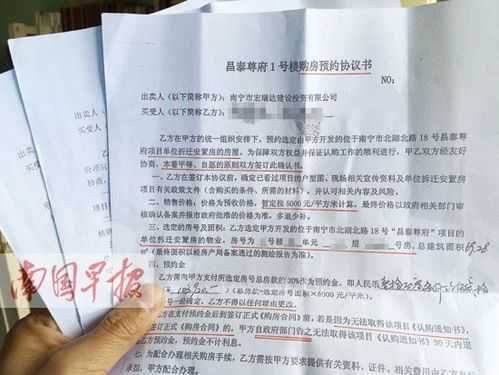 昌泰尊府1号楼购房预约协议书
NO:
出卖人（以下简称甲方）：南宁市宏瑞达建设投资有限公司
买受人（以下简称乙方）：
乙方在甲方的统一组织安排下，预约选定由甲方开发的位于南宁市北湖北路18号昌泰尊
府项目单位拆迁安置房的房屋。为保障双方权益并保证认购工作的顺利进行，甲乙双方经友好
协商，本着平等、自愿的原则双方签订此确认书。
一、乙方在签订本协议前，确定已看过项目的户型图，现场相关宣传资料及单位拆迁安置房
项目有关政策文件（含购买的条件、所需的材料），并认可相关内容及风险。
二、销售价格，价格为预收价，暂定按5000元/平方米计算。最终价格以政府相关部门审
核确认备案并报市政府批准的价格为准，多退少补。
三、选定的房号及面积：乙方选定甲方开发的位于南宁市北湖北路18号“昌泰尊府”项目的
单位拆迁安置房的物业，房号为 号楼 单元 号房，总建筑面积
（最终面积以经房产局备案通过的报告为准）
四、预约金
乙方需向甲方支付所选定房号总房款的30%作为预约金，即人民币
面积×5000元/平方米）。
号一经确定，乙方不得以任何理由更改。
方在支付预约金后到签订正式《购房合同》前，若是因为无法取得该项目《认购通知书》，
签订正式《购房合同》的，甲方自政府部门告之无法取得该项目《认购通知书》30天内退
预约金，预约金不计利息。
七、为配合办理相关购房手续，乙方需按甲方要求提供有关资料、证件、相关费用由乙方自
承担，甲方配合办理。
南国早报